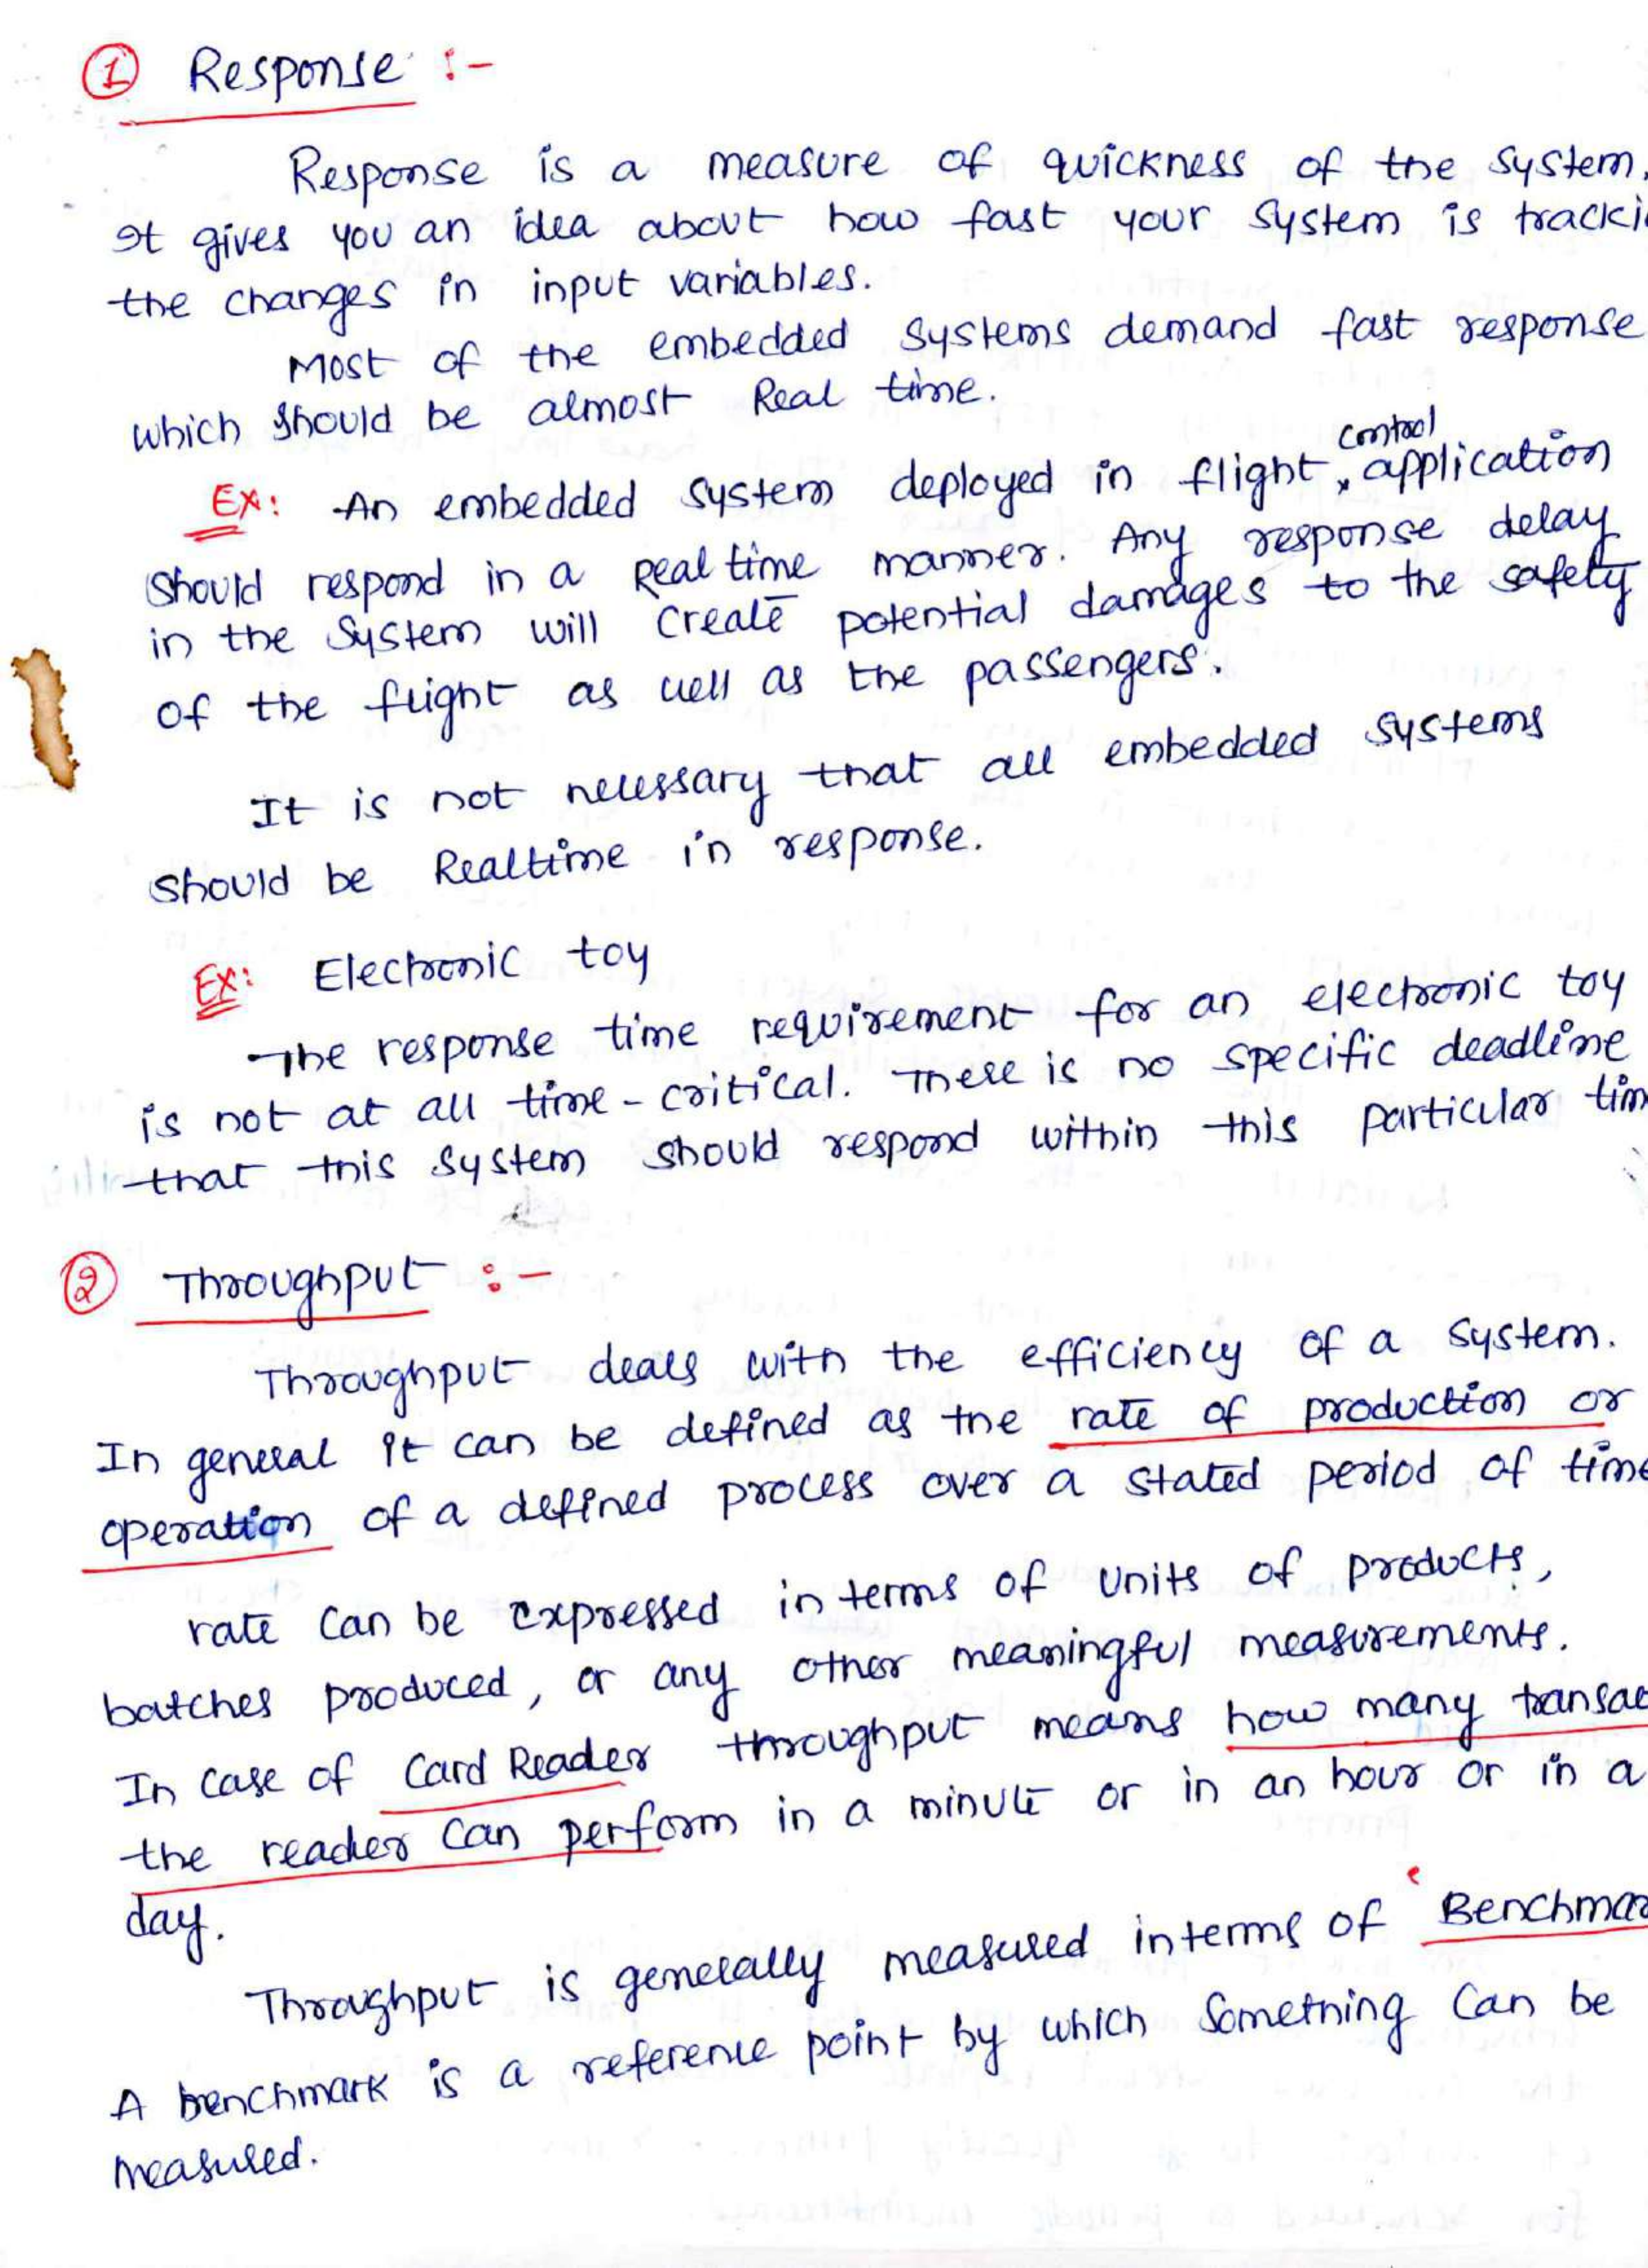 ① Response :-
Response is a measure of quickness of the system.
It gives you an idea about how fast your system is tracki
the changes in input variables.
Most of the embedded systems demand fast response
which should be almost Real time.
control
Ex: An embedded system deployed in flight application
should respond in a Real time manner. Any response delay
in the system will create potential damages to the safety
of the flight as well as the passengers.
It is not necessary that all embedded systems
should be Realtime in response.
Ex: Electronic toy
The response time requirement for an electronic toy
is not at all time-critical. There is no specific deadline
that this system should respond within this particular tim
② Throughput :-
Throughput deals with the efficiency of a system.
In general it can be defined as the rate of production or
operation of a defined process over a stated period of time
rate can be expressed in terms of units of products,
batches produced, or any other meaningful measurements.
In case of Card Reader throughput means how many transac
the reader can perform in a minute or in an hour or in a
day.
Throughput is generally measured interms of 'Benchmar
A benchmark is a reference point by which something can be
measured.